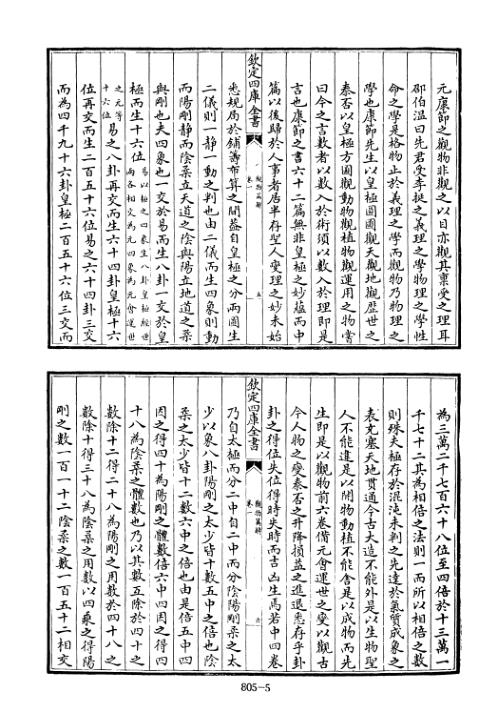 元康節之觀物非觀之以目亦觀其稟受之理耳
邵伯溫曰先君受李挺之義理之學物理之學性
命之學莫格物止於義理之學而觀物乃物理之
學也康節先生以皇極圓圖觀天觀地觀歷世之
泰否以皇極方圖觀動物觀植物觀運用之物嘗
曰今之言數者以數入於術須以數入於理即是
言也康節之書六十二篇無非皇極之妙蘊而中
篇以後歸於人事者居半存聖人變理之妙未始
悉規局於鋪籌布算之間葢自皇極之分兩圖生
欽定四庫全書
觀物篇解
卷一
五
二儀則一靜一動之判也由二儀而生四象則動
而陽剛靜而陰柔立天道之陰與陽立地道之柔
與剛也夫四象也一交於易而生八卦一交於皇
極而生十六位
易以極之四象生八卦皇極經世
兩各相交為元四象為元會運世
之元等
十六位
易之八卦再交而生六十四卦皇極十六
位再交而生二百五十六位易之六十四卦三交
而為四千九十六卦皇極二百五十六位三交而
為三萬二千七百六十八位至四倍於十三萬一
千七十二其為相倍之法則一而所以相倍之數
則殊夫極存於混沌未判之先達於氣質成象之
表充塞天地貫通今古大造不能外是以生物聖
人不能違是以開物動植不能舍是以成物而先
生即是以觀物前六卷備元會運世之變以觀古
今人物之變泰否之升降損益之進退悉存乎卦
卦之得位失位得時失時而吉凶生焉若中四卷
欽定四庫全書
觀物篇解
卷一
六
乃自太極而分二中自二中而分陰陽剛柔之太
少以象八卦陽剛之太少皆十數五中之倍也陰
柔之太少皆十二數六中之倍也由是倍五中四
因之得四十為陽剛之體數倍六中四因之得四
十八為陰柔之體數也乃以其數互除於四十之
數除十二得二十八為陽剛之用數於四十八之
數除十得三十八為陰柔之用數以四乘之得陽
剛之數一百一十二陰柔之數一百五十二相交
805-5